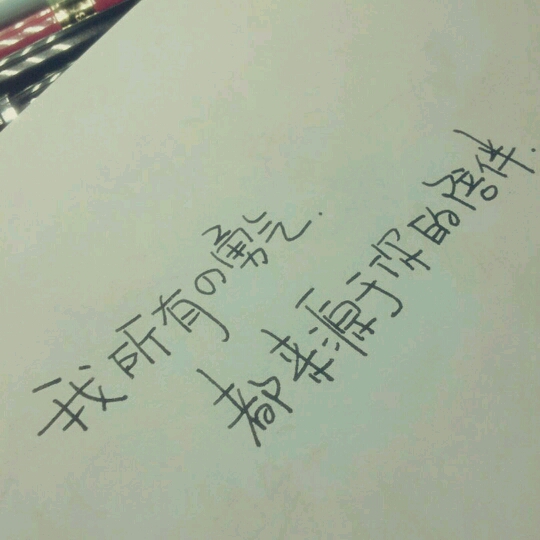 我所有の勇气.
都来源于你的陪伴.